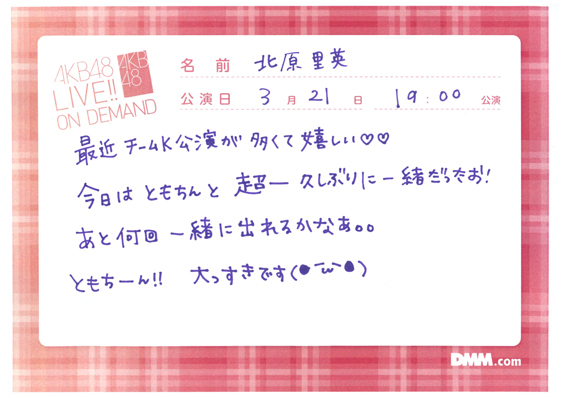 AKB48
LIVE!!
ON DEMAND
AKB
48
名前 北原里英
公演日 3月21日 19:00公演
最近 チームK公演が 多くて嬉しい♡♡
今日は ともちんと 超ー 久しぶりに一緒だったお!
あと何回 一緒に出れるかなあ。。
ともちーん!! 大っすきです(●¯ω¯●)
DMM.com